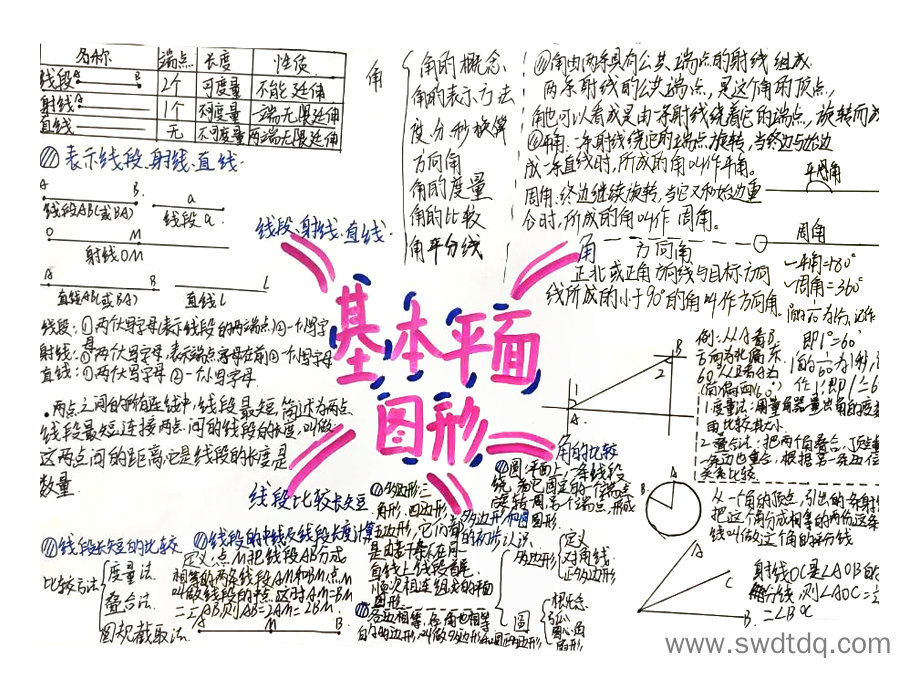 名称 端点 长度 性质
线段 A B 2个 可度量 不能延伸
射线 A 1个 不可度量 一端无限延伸
直线 无 不可度量 两端无限延伸
表示线段、射线、直线.
A B a
线段AB(或BA) 线段a.
O M
射线OM
A B L
直线AB(或BA) 直线L
线段: ①两个大写字母表示线段的两端点 ②一个小写字母
射线: ①两个大写字母,表示端点字母在前 ②一个小写字母
直线: ①两个大写字母 ②一个小写字母.
两点之间的所有连线中,线段最短,简述为两点
线段最短,连接两点间的线段的长度,叫做
这两点间的距离,它是线段的长度是
数量.
线段、射线、直线.
角
角的概念
角的表示方法
度分秒换算
方向角
角的度量
角的比较
角平分线
①角由两条具有公共端点的射线组成
两条射线的公共端点,是这个角的顶点,
角也可以看成是由一条射线绕着它的端点,旋转而成
②平角:一条射线绕它的端点旋转,当终边与始边
成一条直线时,所成的角叫作平角。
平角
周角:终边继续旋转,当它又和始边重
合时,所成的角叫作 周角。
周角
角 方向角
正北或正南方向线与目标方向
线所成的小于90°的角叫作方向角.
一平角=180°
一周角=360°
即1°=60′
例:从A看B
方向为北偏东
60°
B
2
1
A
基本平面
图形
角的比较
1.度量法:用量角器量出角的度数
由比较其大小.
2.叠合法:把两个角叠合,顶点重
一条边也重合,根据另一条边位
关系比较.
A
B
从一个角的顶点,引出的一条射线
把这个角分成相等的两份这条
线叫做这个角的平分线
A
C
B
射线OC是∠AOB的
角平分线,则∠AOC=
=∠BOC
线段比较长短
线段长短的比较
比较方法
度量法.
叠合法.
圆规截取法.
线段的中线及线段长度计算
定义:点M把线段AB分成
相等的两条线段AM和BM,点M
叫做线段的中点.这时AM=BM
=½AB,则AB=2AM=2BM.
A M B
多边形:三
角形、四边形、
五边形,它们都
是由若干条不在同一
直线上线段首尾
顺次相连组成的平面
图形.
各边相等,各角也相等
的多边形,叫做正多边形
圆:平面上,一条线段
绕着它固定的一个端点
旋转一周,另一个端点形成
图形.
多边形和圆的初步认识.
多边形
定义
对角线
正多边形
圆
概念
弧
圆心角
扇形
www.swdtdq.com